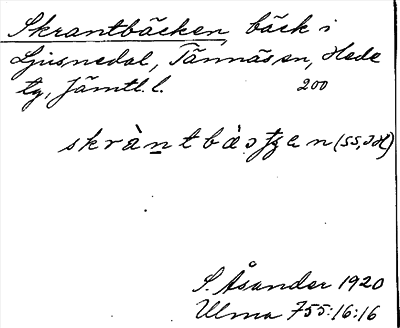 Skrantbäcken, bäck i
Ljusnedal, Tännäs sn, Hede
tg, Jämtl. l. 200
S. Åsander 1920
Ulma 755:16:16